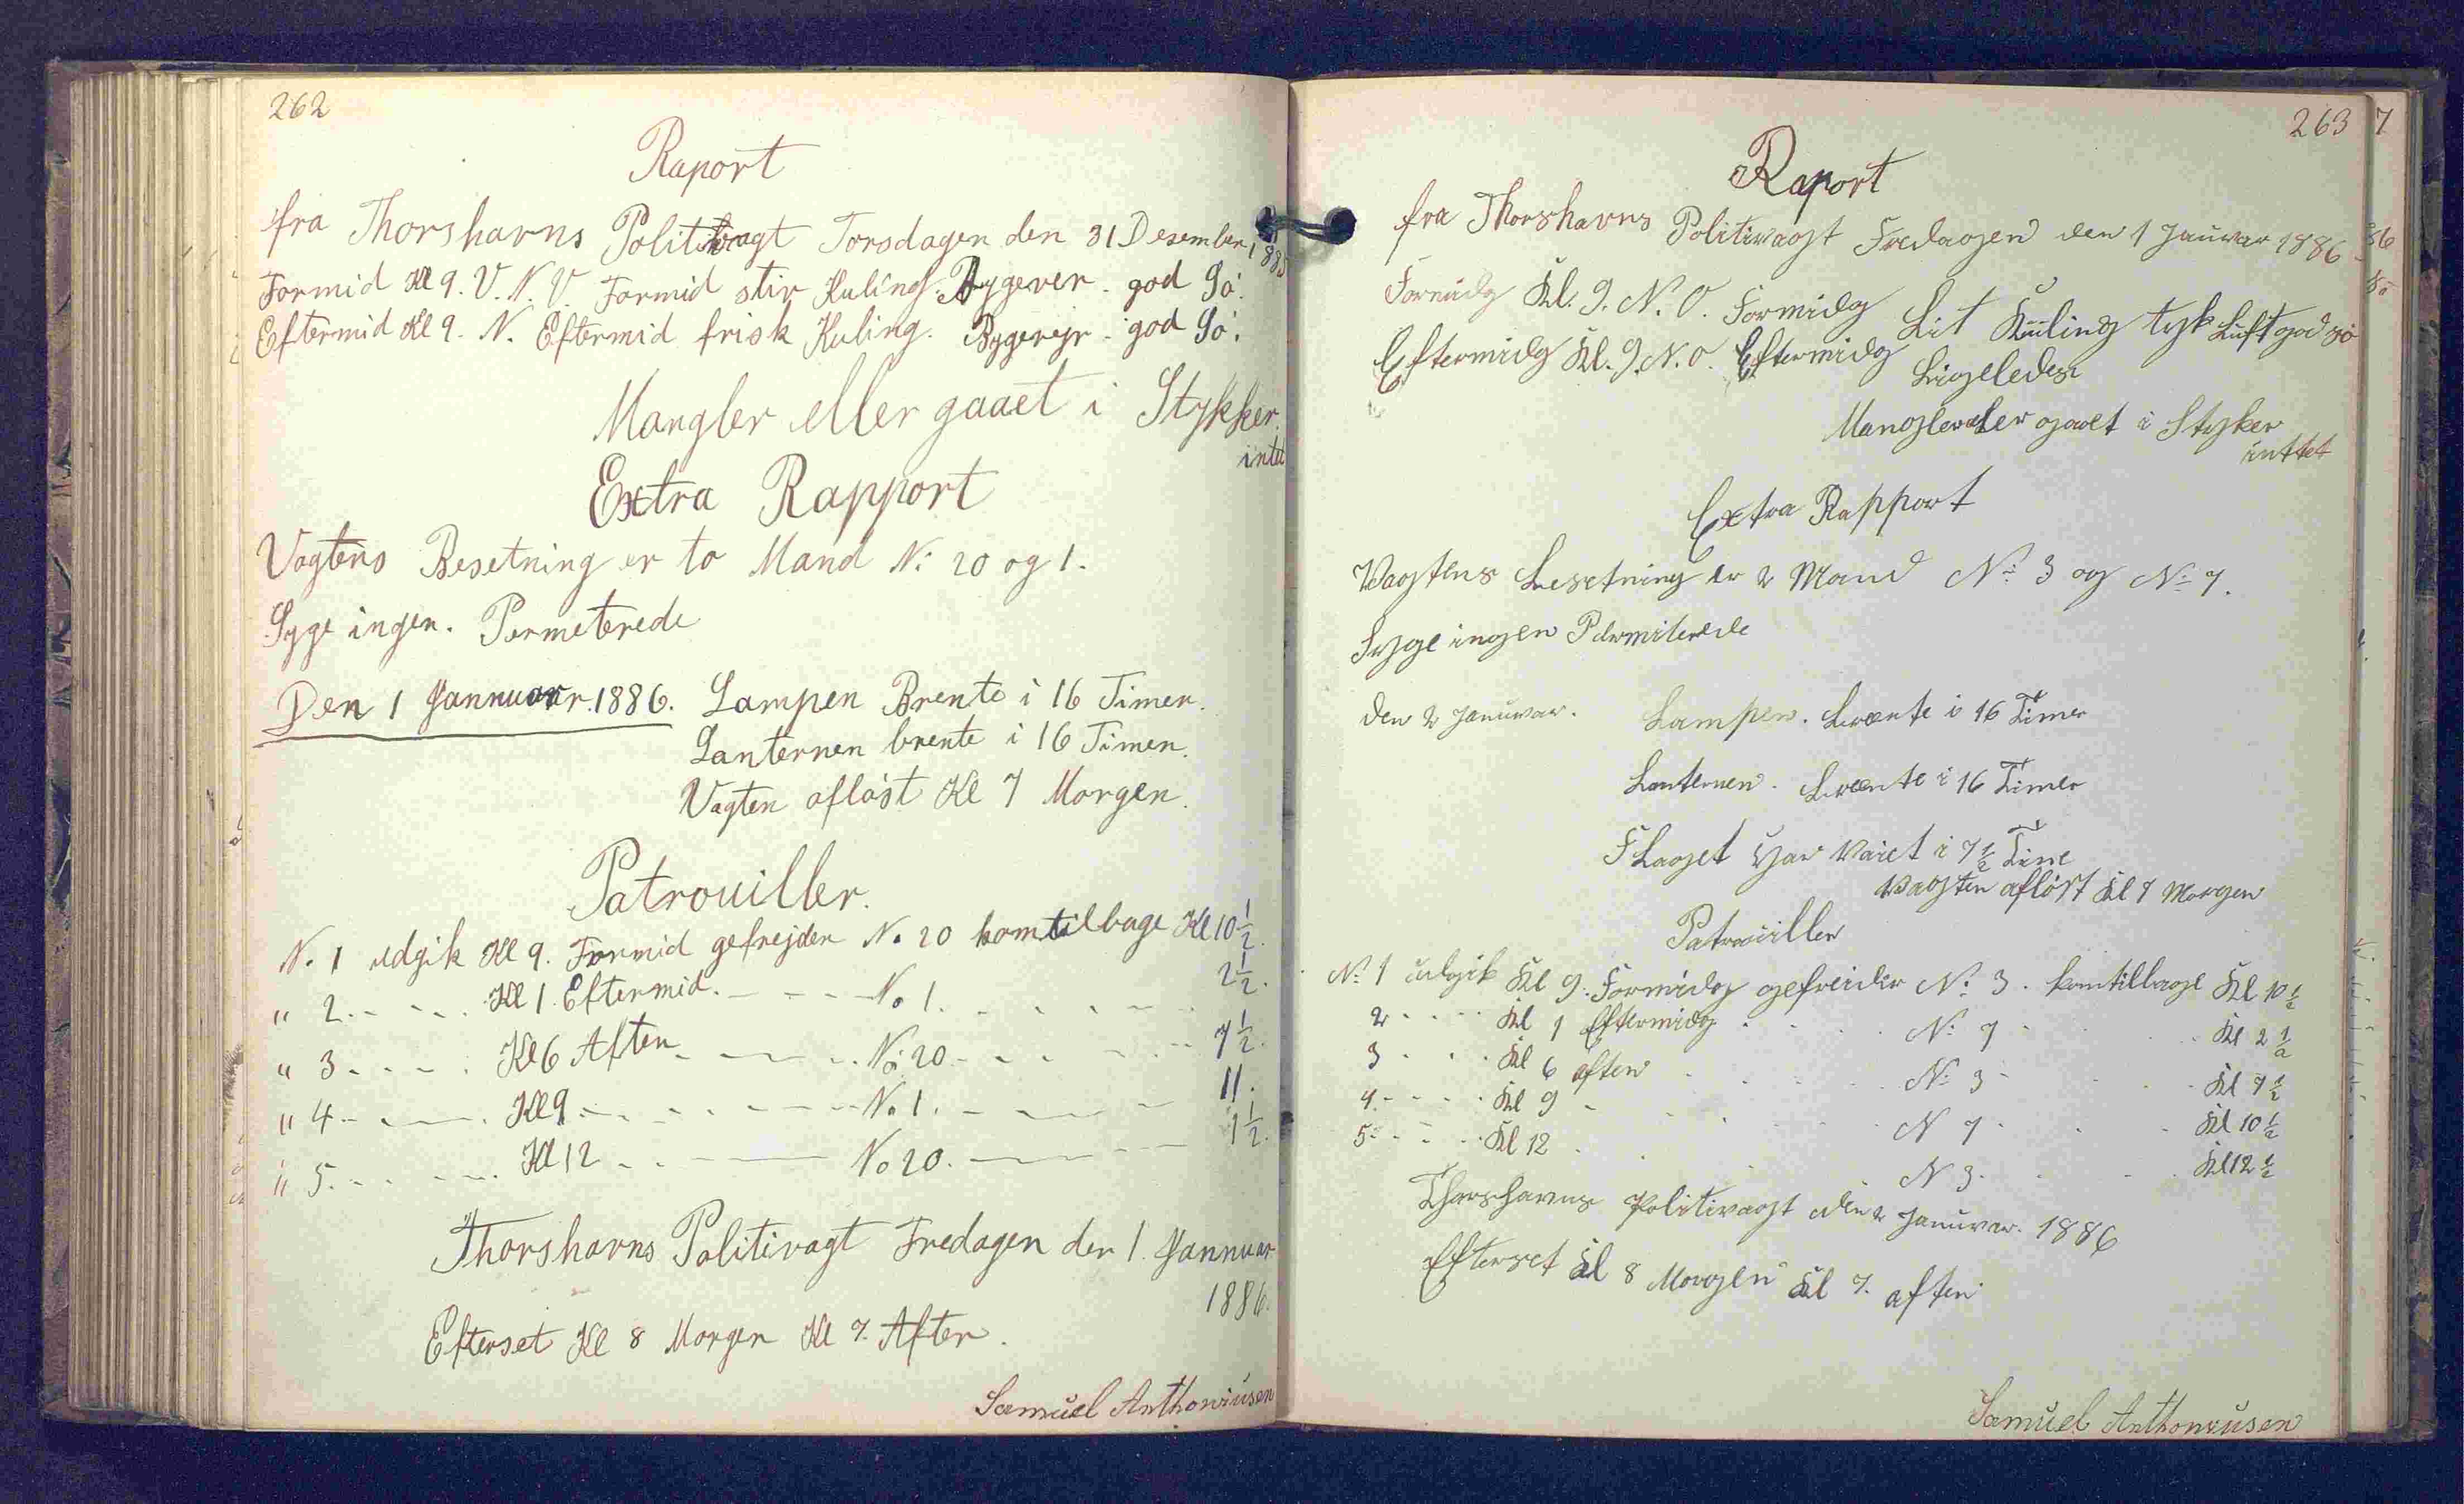 262
Raport
fra Thorshavns Politivagt Torsdagen den 31 Desember 1885
Formid Kl 9. V. N. V. Formid stiv Kuling. Bygever. god Sö.
Eftermid Kl 9. N. Eftermid frisk Kuling. Bygevejr. god Sö.
Mangler eller gaaet i Stykker.
intet
Extra Rapport
Vagtens Besetning er to Mand No 20 og 1.
Syge ingen. Permeterede
Den 1 Jannuar. 1886. Lampen Brente i 16 Timer.
Lanternen brente i 16 Timer.
Vagten aflöst Kl 7 Morgen.
Patrouiller.
N. 1 udgik Kl 9. Formid gefrejder No 20 kom tilbage Kl 10 1/2.
" 2. - - - Kl 1. Eftermid. - - - No 1. - - - - 2 1/2.
" 3 - - - - Kl 6 Aften - - - - No 20 - - - - 7 1/2.
" 4 - - - - Kl 9 - - - - No 1. - - - - 11.
" 5. - - - - Kl 12 - - - - No 20. - - - - 1 1/2.
Thorshavns Politivagt Fredagen den 1. Jannuar
1886.
Efterset Kl 8 Morgen Kl 7. Aften.
Samuel Anthoniusen
263
Raport
fra Thorshavns Politivagt Fredagen den 1 Januvar 1886
Formidg Kl. 9. N. O. Formidg Lit Kuling tyk Luft god sö
Eftermidg Kl. 9. N. O. Eftermidg Ligeledes
Mangler eler gaaet i Styker
inttet
Extra Rapport
Vagtens besetning er 2 Mand No 3 og No 7.
Syge ingen Permiterede
Den 2 Januvar. Lampen. brænte i 16 Timer
Lanternen. brænte i 16 Timer
Flaget har Vaiet i 7 1/2 Time
Vagten aflöst Kl 7 Morgen
Patrouiller
No 1 udgik Kl 9. Formidg gefreider No 3. kom tilbage Kl 10 1/2
2 - - - - Kl 1 Eftermidg - - - No 7 - - - Kl 2 1/2
3 - - - Kl 6 aften - - - No 3 - - - Kl 7 1/2
4. - - - Kl 9 - - - - N 7 - - - Kl 10 1/2
5 - - - Kl 12 - - - - N 3. - - - Kl 12 1/2
Thorshavns Politivagt den 2 Januvar. 1886
Efterset Kl 8 Morgen Kl 7. aften
Samuel Anthoniusen
7
86